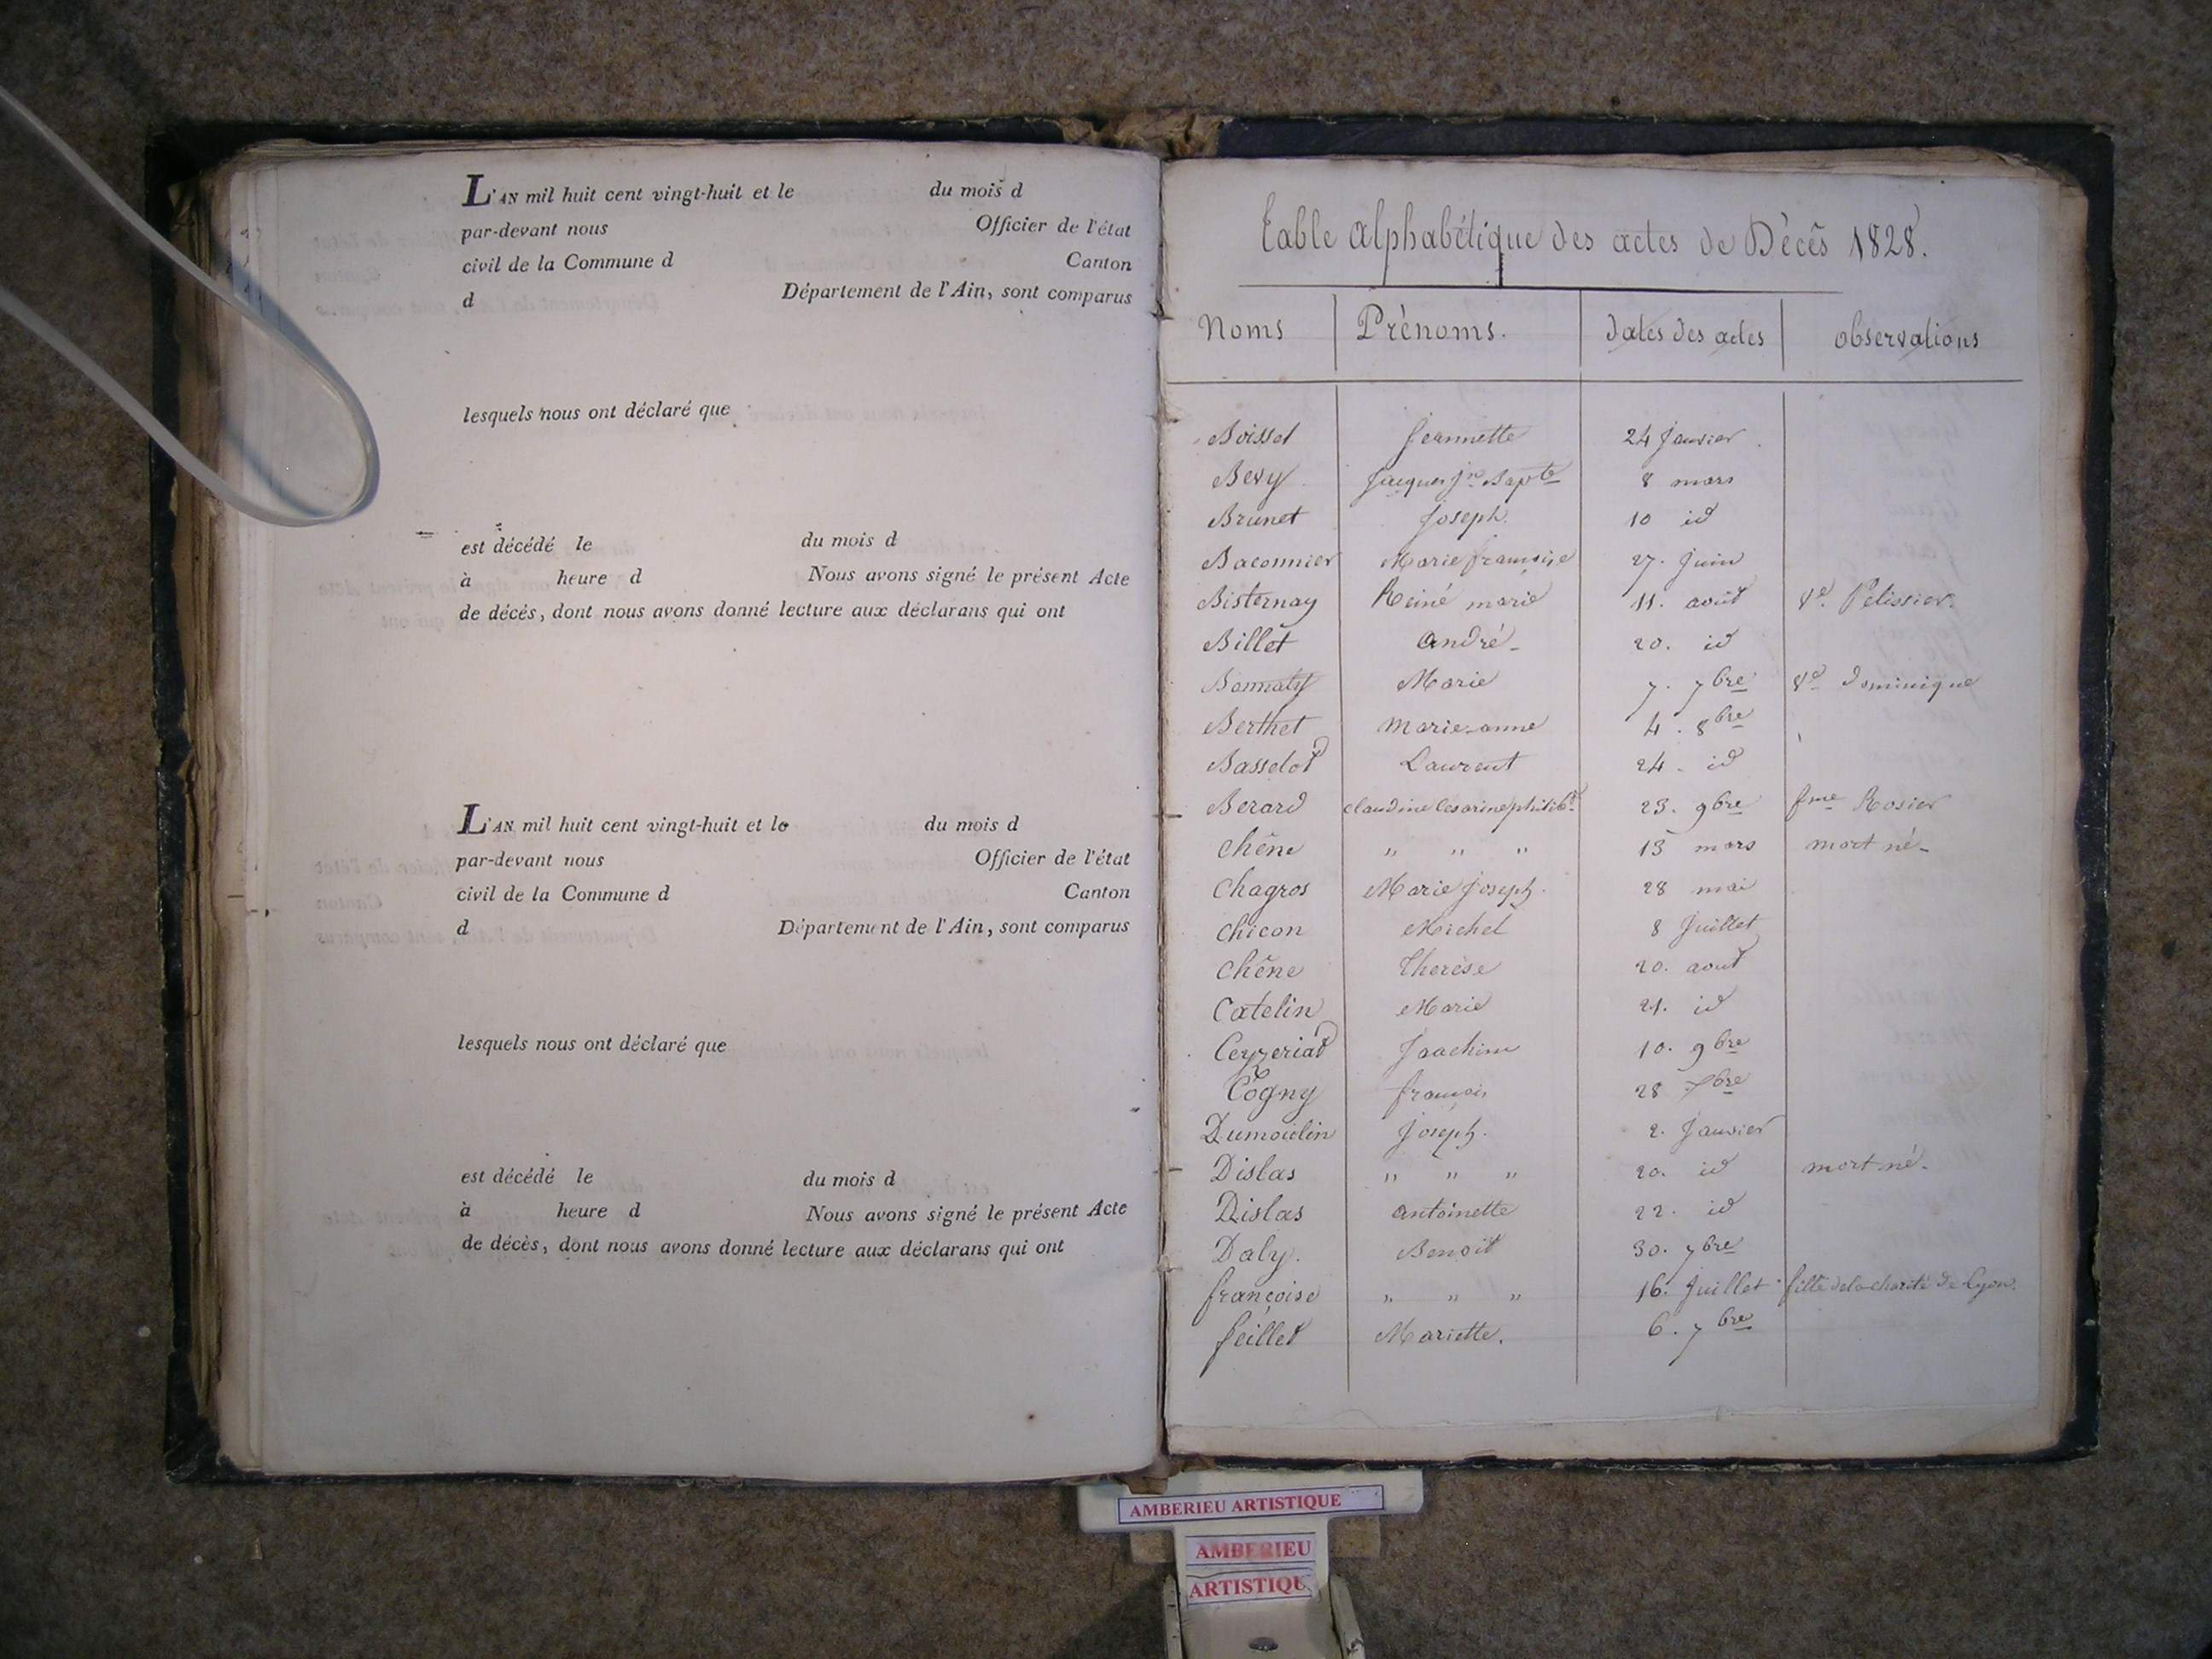 L'AN mil huit cent vingt-huit et le du mois d
par-devant nous Officier de l'état
civil de la Commune d Canton
d Département de l'Ain, sont comparus
lesquels nous ont déclaré que
est décédé le du mois d
à heure d Nous avons signé le présent Acte
de décés, dont nous avons donné lecture aux déclarans qui ont
L'AN mil huit cent vingt-huit et le du mois d
par-devant nous Officier de l'état
civil de la Commune d Canton
d Département de l'Ain, sont comparus
lesquels nous ont déclaré que
est décédé le du mois d
à heure d Nous avons signé le présent Acte
de décès, dont nous avons donné lecture aux déclarans qui ont
Table alphabétique des actes de Décès 1828.
Noms Prénoms. dates des actes observations
Boisset Jeannette 24 Janvier
Bevy Jacques Jn Bapte 8 mars
Brunet Joseph. 10 id
Baconnier Marie françoise 27. Juin
Bisternay Reine marie 11. août Ve. Pelissier.
Billet André 20. id
Marie 7. 7bre Ve dominique
Berthet Marie-anne 4. 8bre
Basselot Laurent 24. id
Berard claudine Cesarine philibte 23. 9bre fme Rosier
Chêne " " " 15 mars mort né
Chagros Marie Joseph. 28 mai
Chicon Michel 8 Juillet
Chêne Therèse 20. aout
Catelin Marie 21. id
Ceyzeriat Joachim 10. 9bre
Cogny françois 28 Xbre
Dumoulin Joseph. 2. Janvier
Dislas " " " 20. id mort né.
Dislas antoinette 22. id
Daly. Benoit 30. 7bre
françoise " " " 16. Juillet fille de la charité de Lyon.
feillet Mariette. 6. 7bre
AMBERIEU ARTISTIQUE
AMBERIEU
ARTISTIQU